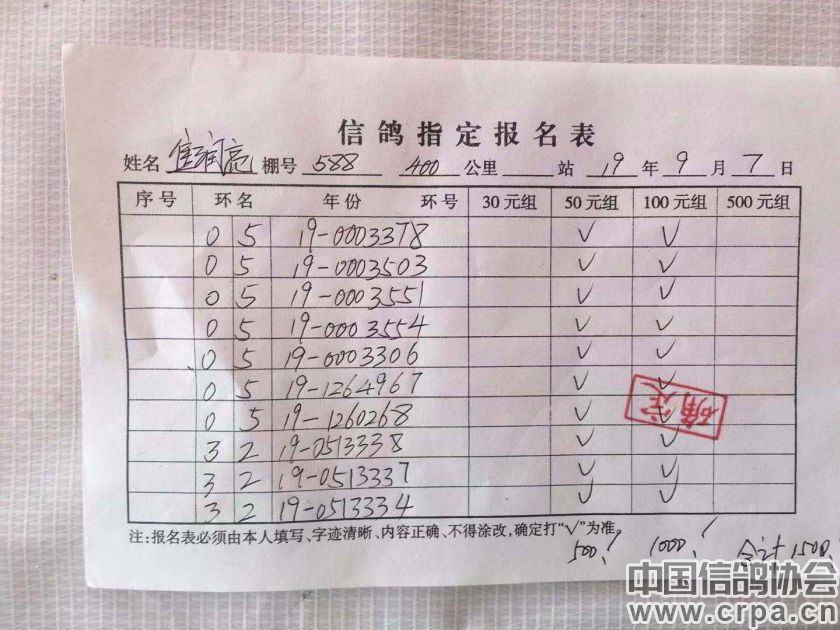 信鸽指定报名表
姓名 崔润亮 棚号 588 400 公里 站 19 年 9 月 7 日
序号 环名 年份 环号 30元组 50元组 100元组 500元组
0 5 19-0003378 √ √
0 5 19-0003503 √ √
0 5 19-0003551 √ √
0 5 19-0003554 √ √
0 5 19-0003306 √ √
0 5 19-1264967 √ √
0 5 19-1260268 √ √
3 2 19-0513338 √ √
3 2 19-0513337 √ √
3 2 19-0513334 √ √
确定
注:报名表必须由本人填写、字迹清晰、内容正确、不得涂改,确定打“√”为准。
500! 1000! 合计1500.
中国信鸽协会
www.crpa.cn